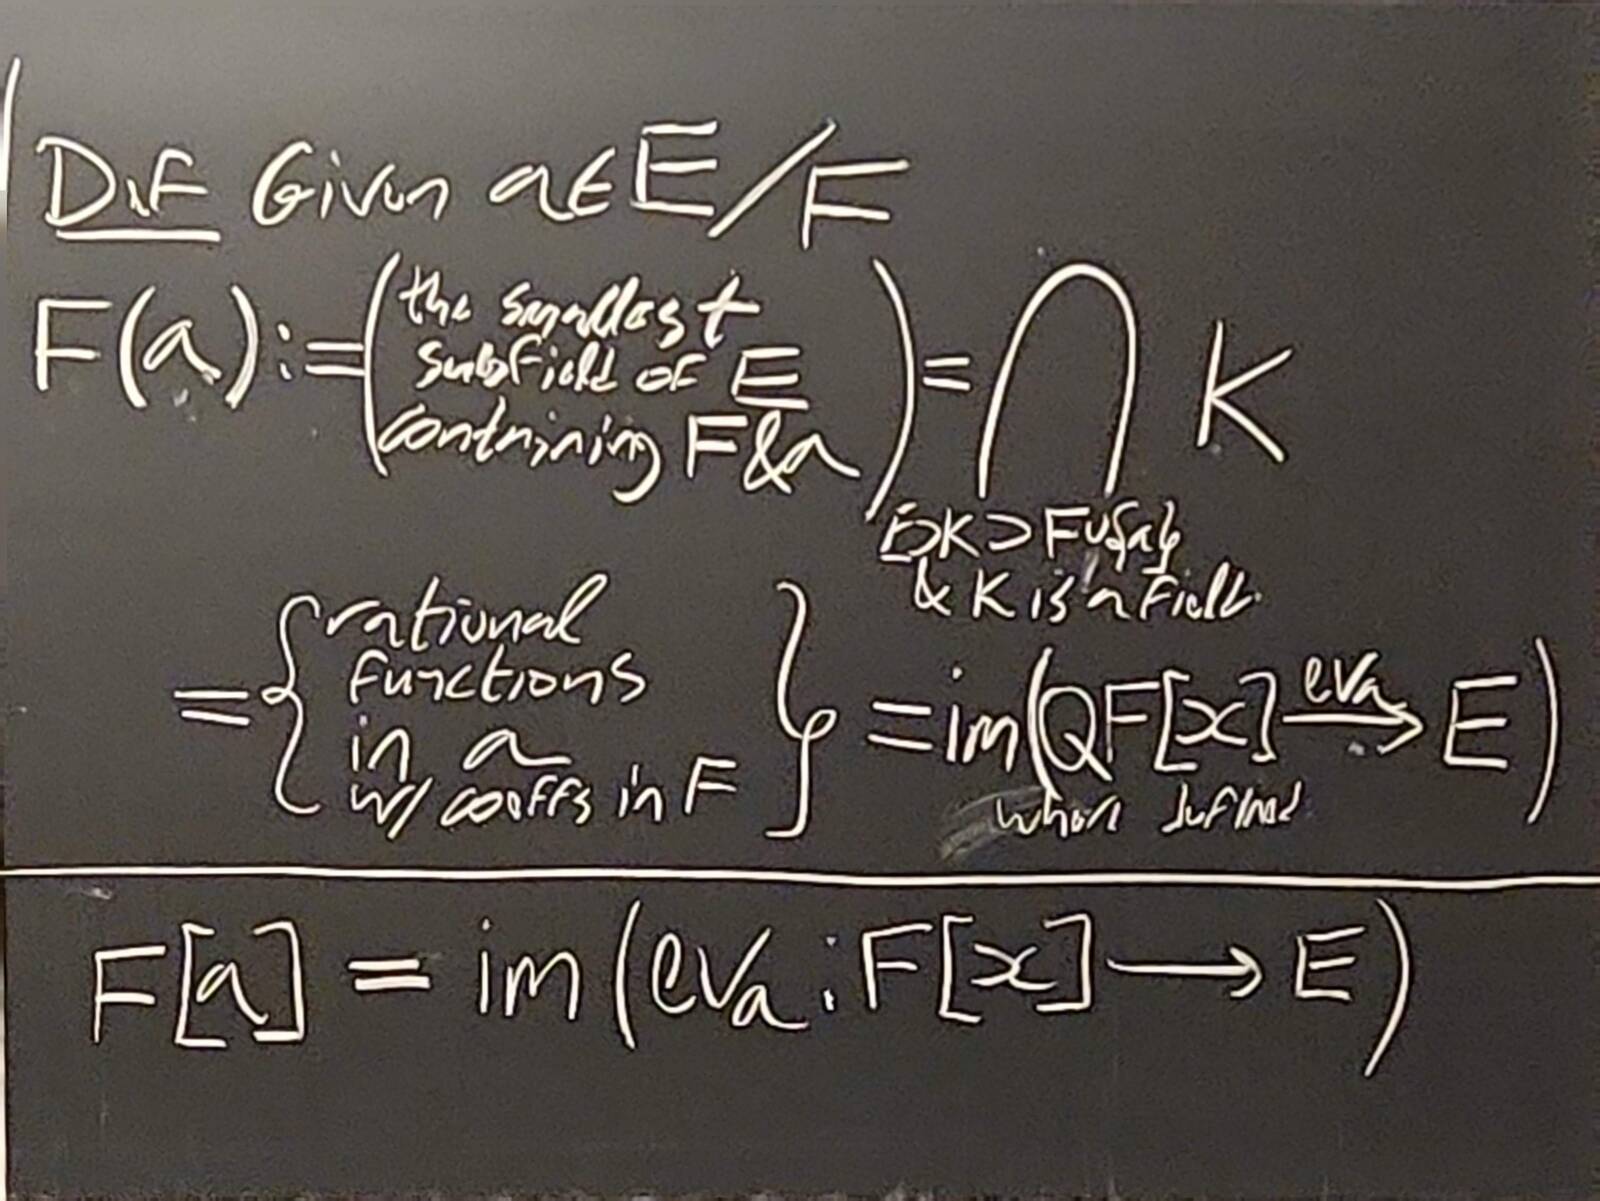 Def Given a∈E/F
F(a):=(the smallest subfield of E containing F&a)=⋂ K
E⊃K⊃F∪{a}
& K is a field.
={rational functions in a w/ coeffs in F}=im(QF[x] --ev_a--> E)
where defined
F[a] = im(ev_a:F[x]⟶E)